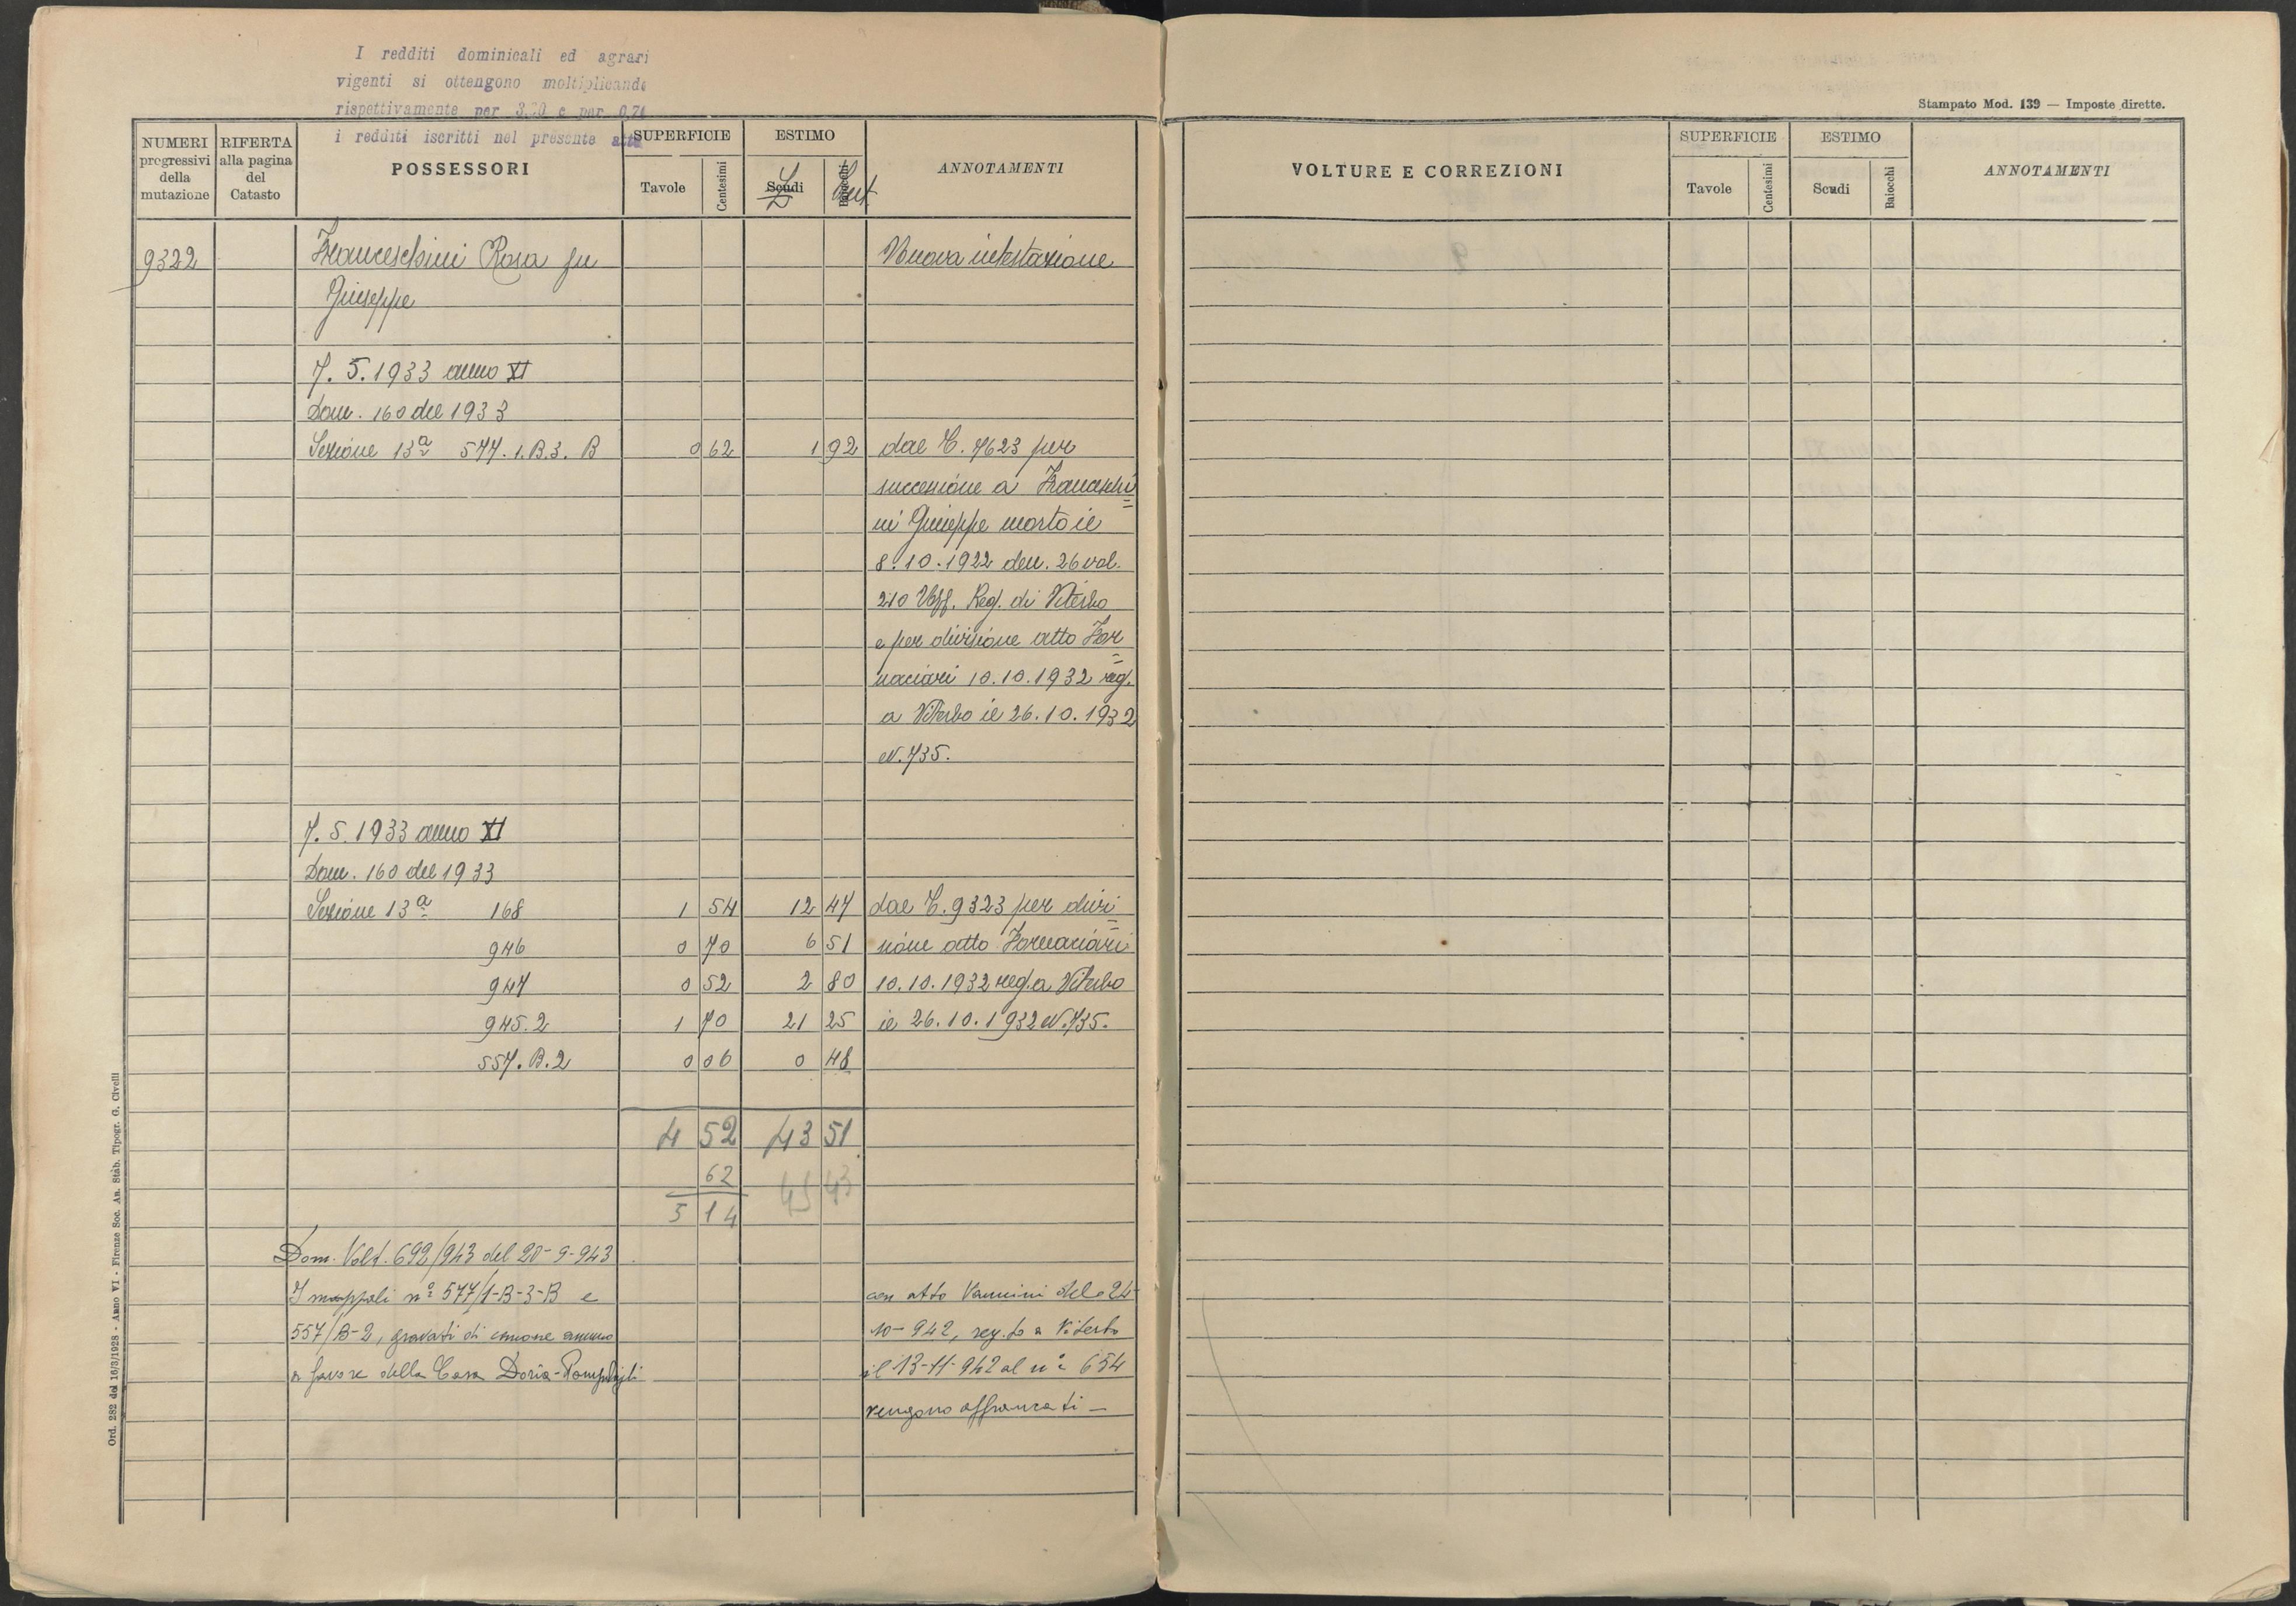 I redditi dominicali ed agrari
vigenti si ottengono moltiplicando
rispettivamente per 3.20 e per 0,74
i redditi iscritti nel presente atto
Stampato Mod. 139 — Imposte dirette.
NUMERI progressivi della mutazione
RIFERTA alla pagina del Catasto
POSSESSORI
SUPERFICIE
Tavole
Centesimi
ESTIMO
Scudi
Baiocchi
L
Cent
ANNOTAMENTI
9322 Franceschini Rosa fu Nuova intestazione
Giuseppe
7. 5. 1933 anno XI
Dom. 160 del 1933
Sezione 13ª 577. 1. B. 3. B 0 62 1 92 dal C. 7623 per
successione a Franceschi
ni Giuseppe morto il
8. 10. 1922 den. 26 vol.
210 Uff. Reg. di Viterbo
e per divisione atto For
naciari 10. 10. 1932 reg.
a Viterbo il 26. 10. 1932
N. 735.
7. 5. 1933 anno XI
Dom. 160 del 1933
Sezione 13ª 168 1 54 12 47 dal C. 9323 per divi
946 0 70 6 51 sione atto Fornaciari
947 0 52 2 80 10. 10. 1932 reg. a Viterbo
945. 2 1 70 21 25 il 26. 10. 1932 N. 735.
557. B. 2 0 06 0 48
4 52 43 51
62 45 43
5 14
Dom. Volt. 692/943 del 20-9-943
I mappali n° 577/1-B-3-B e con atto Vannini del 24-
557/B-2, gravati di canone annuo 10-942, reg.to a Viterbo
a favore della Casa Doria-Pamphili il 13-11-942 al n° 654
vengono affrancati —
Ord. 282 del 16/3/1928 - Anno VI - Firenze Soc. An. Stab. Tipogr. G. Civelli
VOLTURE E CORREZIONI
SUPERFICIE
Tavole
Centesimi
ESTIMO
Scudi
Baiocchi
ANNOTAMENTI